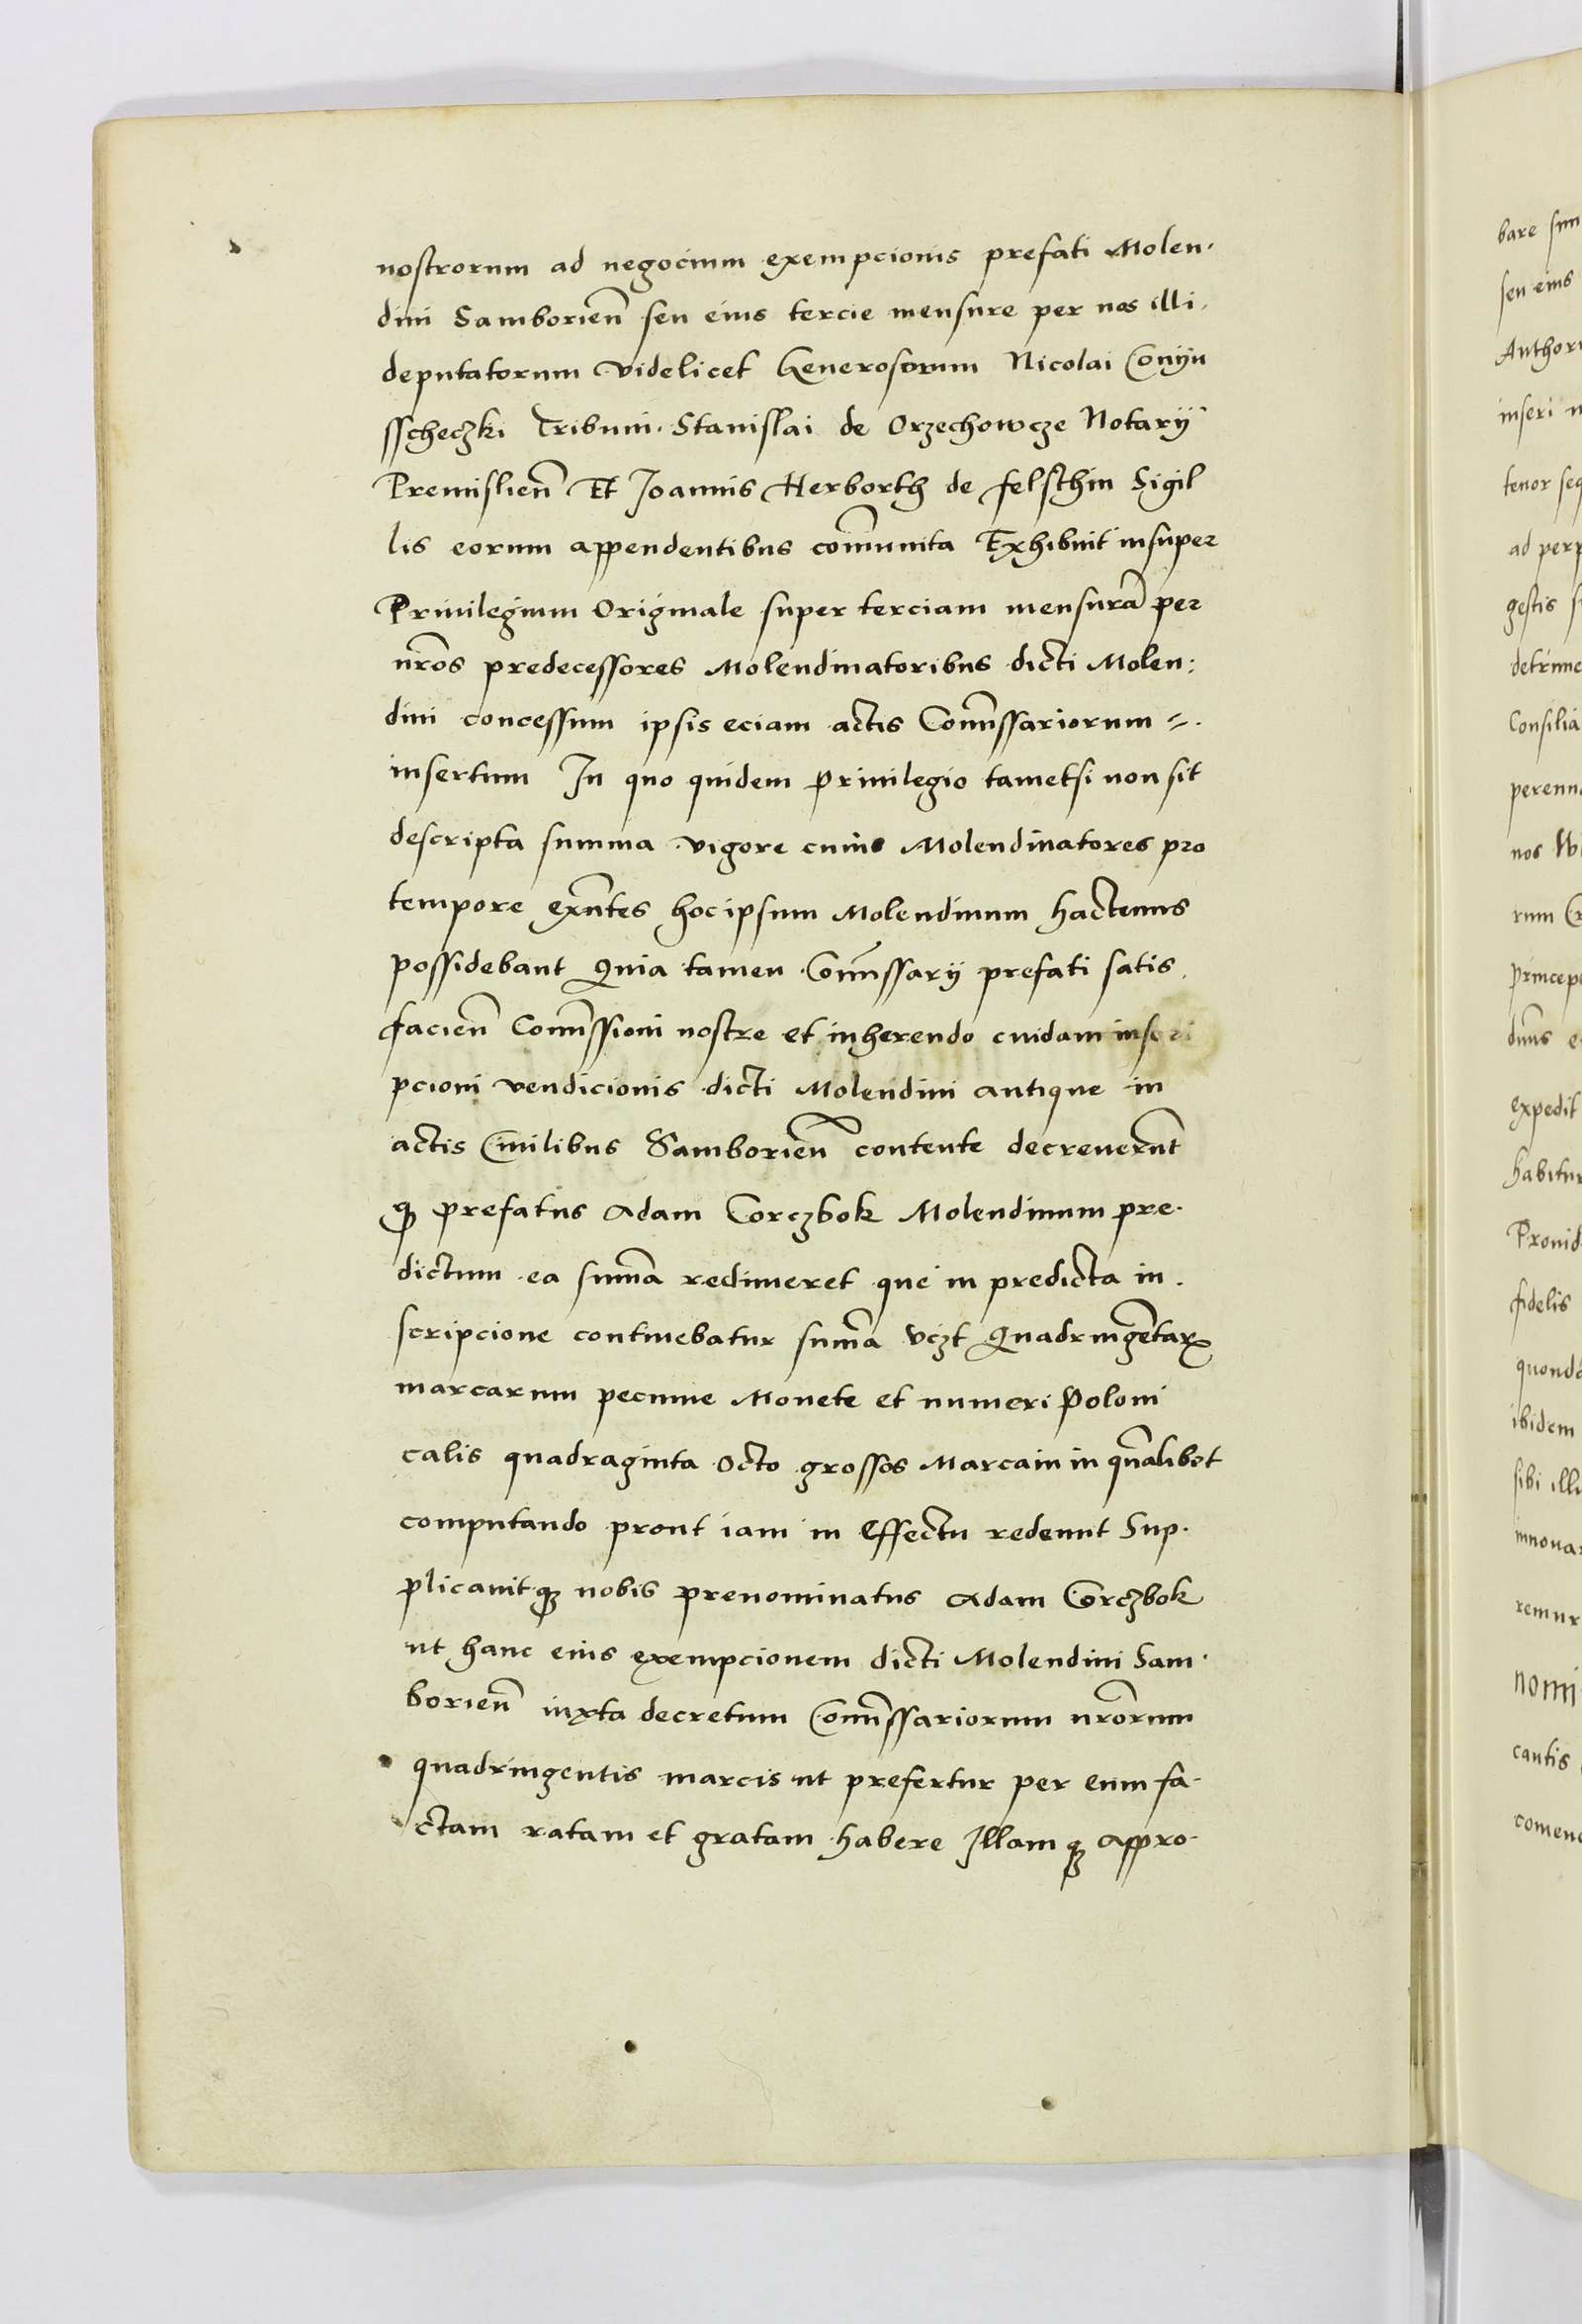 nostrorum ad negocium exempcionis prefati Molen.
dini Samborien̄ seu eius tercie mensure per nos illi.
deputatorum videlicet Generosorum Nicolai Conyu
sscheczki Tribuni. Stanislai de Orzechowcze Notarij
Premislien̄ Et Joannis Herborth de felsthin Sigil
lis eorum appendentibus com̄unita Exhibuit insuper
Priuilegium Originale super terciam mensurā per
nr̄os predecessores Molendinatoribus dicti Molen:
dini concessum ipsis eciam actis Com̄issariorum =.
insertum In quo quidem priuilegio tametsi non sit
descripta summa vigore cuius Molendinatores pro
tempore exn̄tes hoc ipsum Molendinum hactenus
possidebant Quia tamen Com̄issarij prefati satis.
facien̄ Com̄issioni nostre et inherendo cuidam inscri
pcioni vendicionis dicti Molendini antique in
actis Ciuilibus Samborien̄ contente decreuerūt
qꝫ prefatus Adam Corczbok Molendinum pre.
dictum ea sum̄a redimeret que in predicta in.
scripcione continebatur sum̄a vczt Quadringētaꝝ
marcarum pecunie Monete et numeri Poloni
calis quadraginta Octo grossos Marcam in qūalibet
computando prout iam in Effectu redemit Sup.
plicauitqꝫ nobis prenominatus Adam Corczbok
ut hanc eius exempcionem dicti Molendini Sam.
borien̄ iuxta decretum Com̄issariorum nr̄orum
quadringentis marcis ut prefertur per eum fa.
ctam ratam et gratam habere Illamqꝫ appro.
bare
seu eius
inseri
tenor
gestis
nos
expedit
fidelis
ibidem
cantis